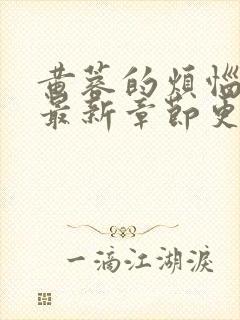 黄蓉的烦恼
最新章节更
一滴江湖淚